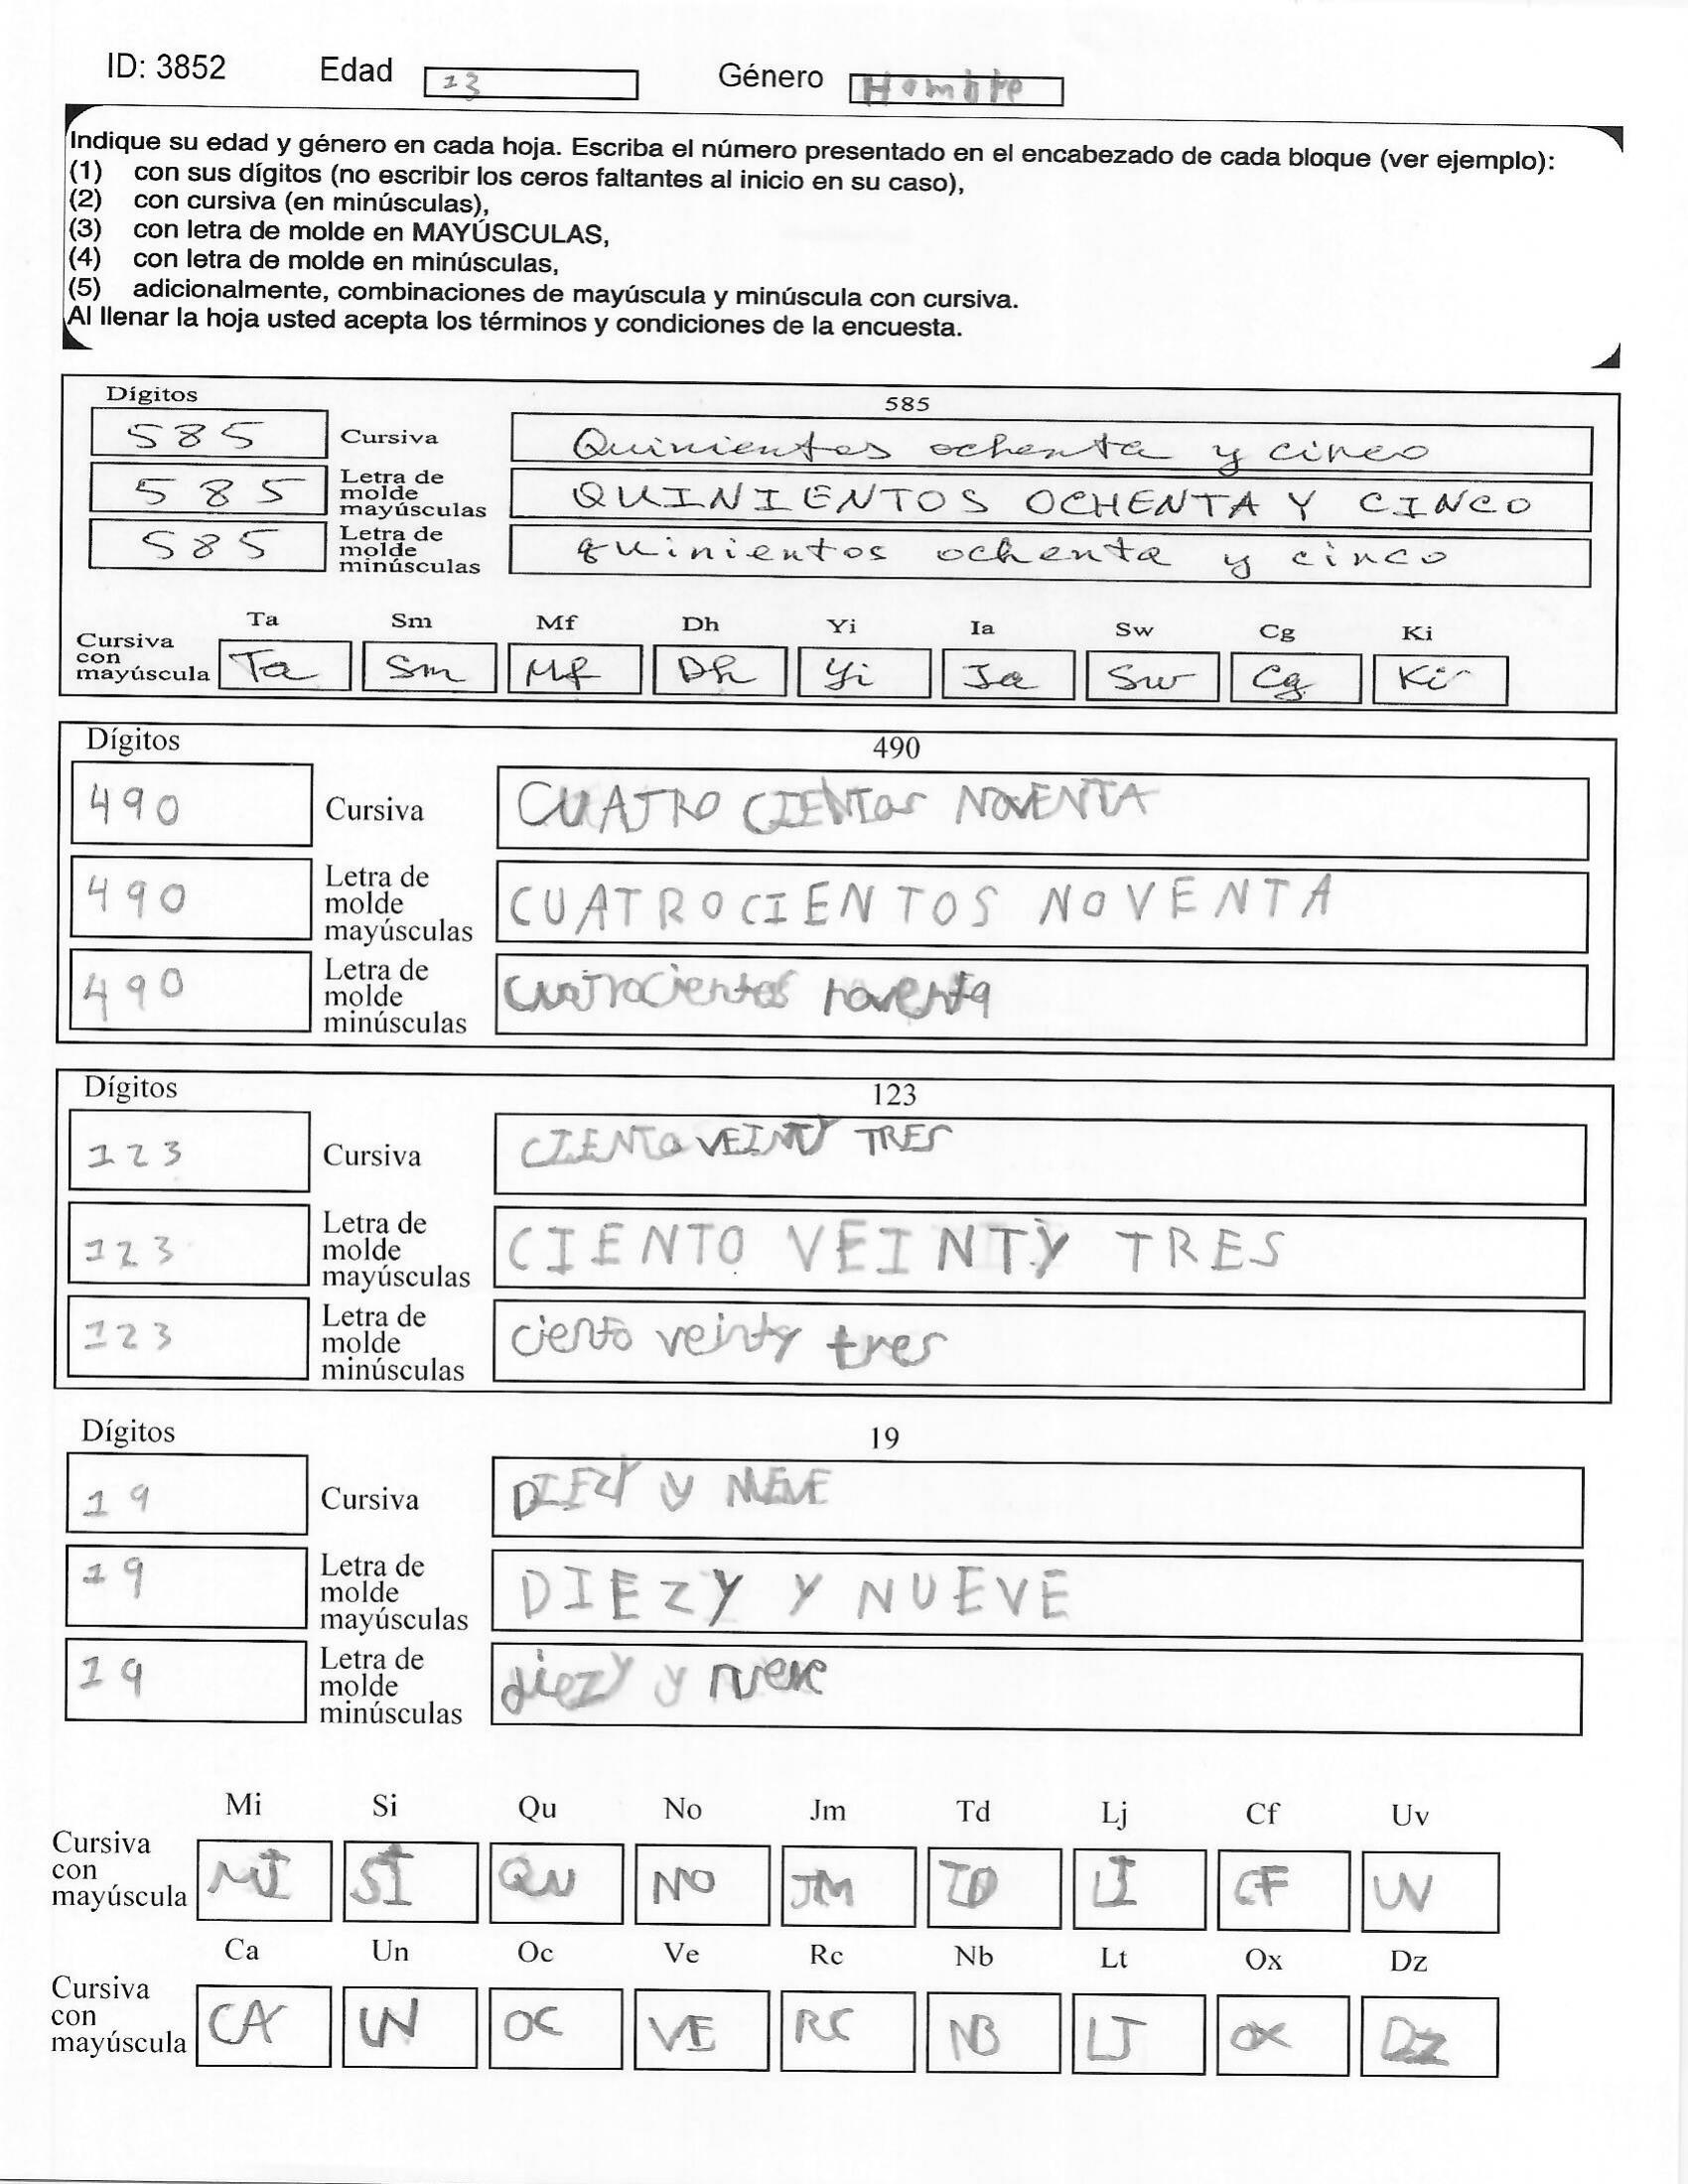 ID: 3852 Edad 13 Género Hombre
Indique su edad y género en cada hoja. Escriba el número presentado en el encabezado de cada bloque (ver ejemplo):
(1) con sus dígitos (no escribir los ceros faltantes al inicio en su caso),
(2) con cursiva (en minúsculas),
(3) con letra de molde en MAYÚSCULAS,
(4) con letra de molde en minúsculas,
(5) adicionalmente, combinaciones de mayúscula y minúscula con cursiva.
Al llenar la hoja usted acepta los términos y condiciones de la encuesta.
Dígitos 585
585 Cursiva Quinientos ochenta y cinco
585 Letra de molde mayúsculas QUINIENTOS OCHENTA Y CINCO
585 Letra de molde minúsculas quinientos ochenta y cinco
Ta Sm Mf Dh Yi Ia Sw Cg Ki
Cursiva con mayúscula Ta Sm Mf Dh Yi Ia Sw Cg Ki
Dígitos 490
490 Cursiva CUATRO CIENTOS NOVENTA
490 Letra de molde mayúsculas CUATROCIENTOS NOVENTA
490 Letra de molde minúsculas cuatrocientos noventa
Dígitos 123
123 Cursiva CIENTO VEINTY TRES
123 Letra de molde mayúsculas CIENTO VEINTY TRES
123 Letra de molde minúsculas ciento veinty tres
Dígitos 19
19 Cursiva DIEZY Y NUEVE
19 Letra de molde mayúsculas DIEZY Y NUEVE
19 Letra de molde minúsculas diezy y nueve
Mi Si Qu No Jm Td Lj Cf Uv
Cursiva con mayúscula MI SI QU NO JM TD LJ CF UV
Ca Un Oc Ve Rc Nb Lt Ox Dz
Cursiva con mayúscula CA UN OC VE RC NB LT OX DZ